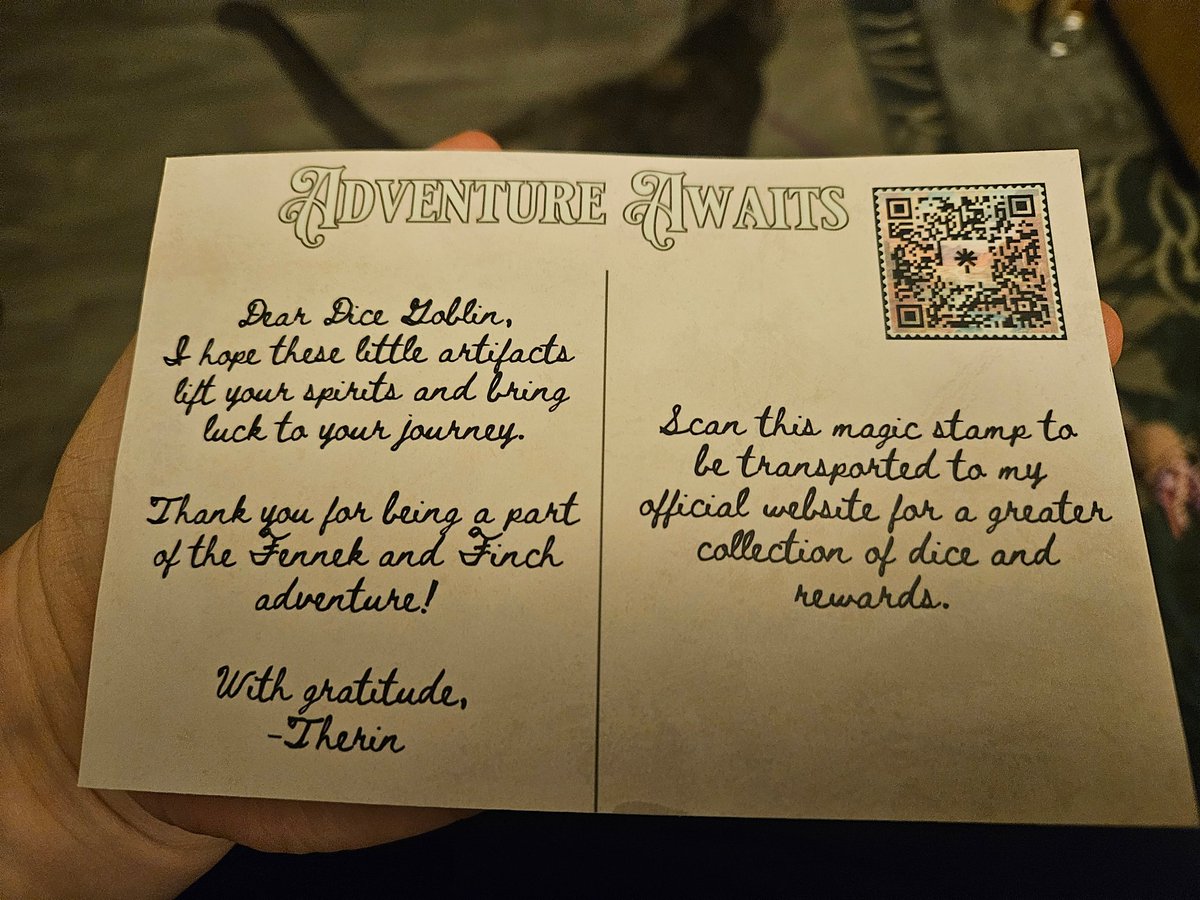 Adventure Awaits
Dear Dice Goblin,
I hope these little artifacts
lift your spirits and bring
luck to your journey.
Thank you for being a part
of the Fennek and Finch
adventure!
With gratitude,
-Therin
Scan this magic stamp to
be transported to my
official website for a greater
collection of dice and
rewards.